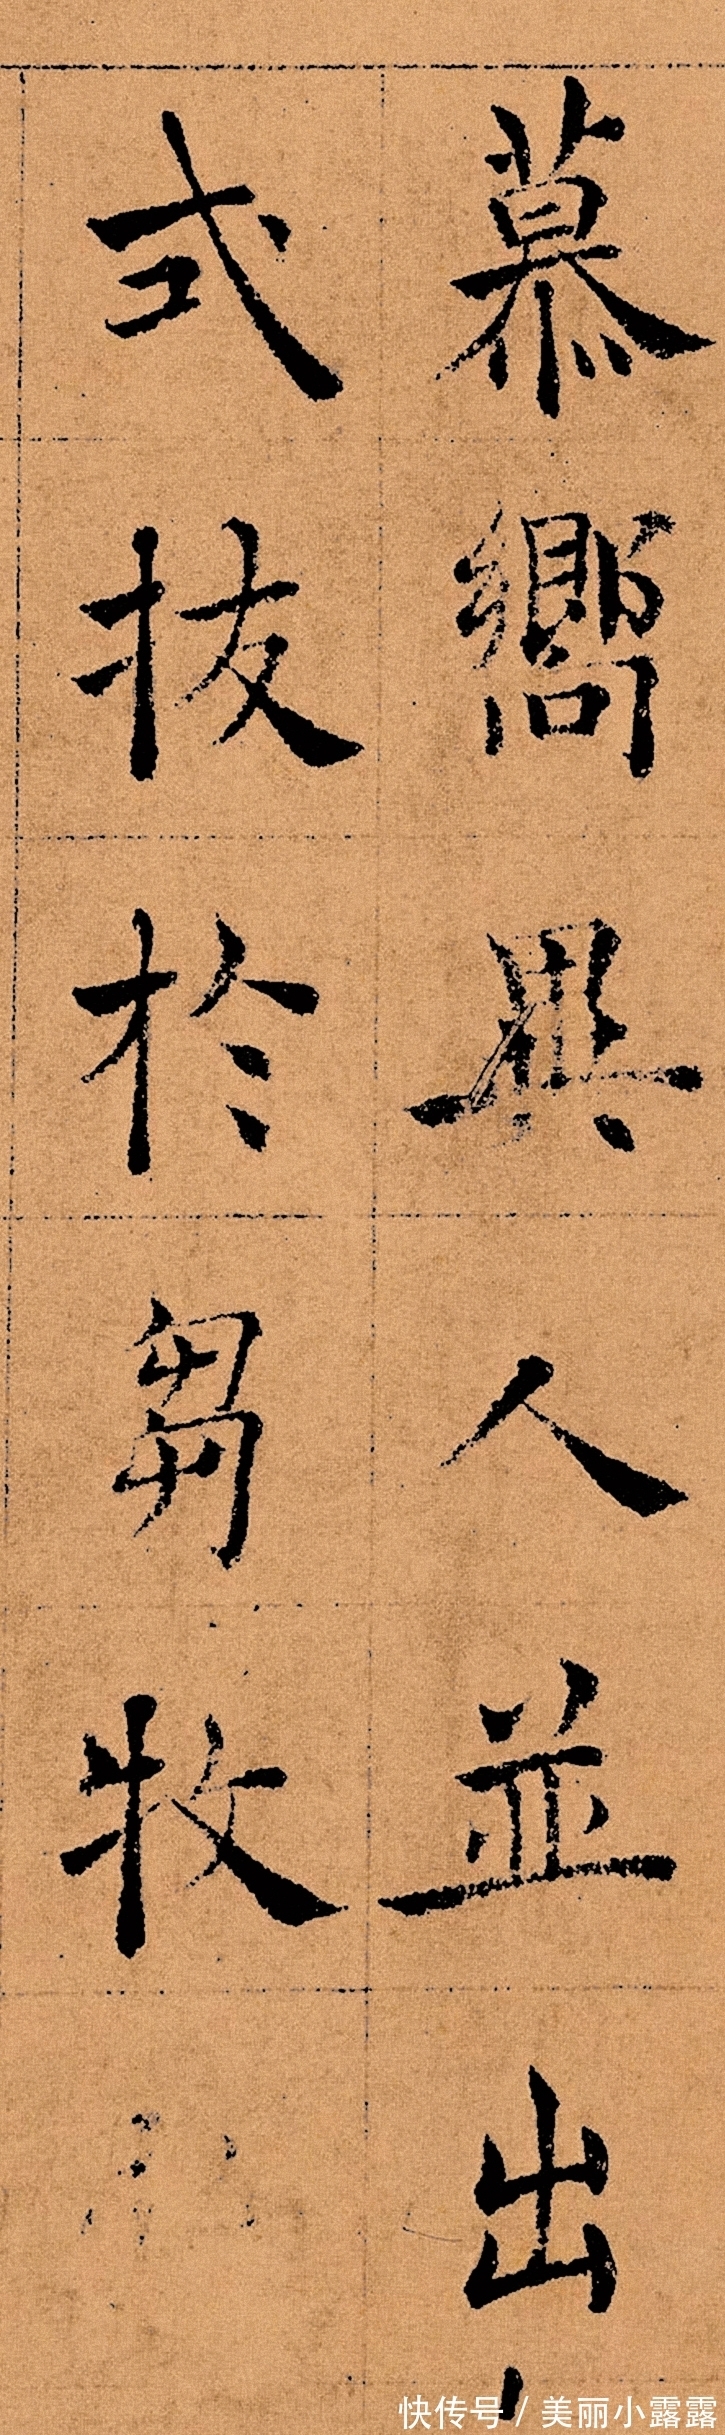 慕嚮異人並出
式拔於芻牧
快传号/美丽小露露